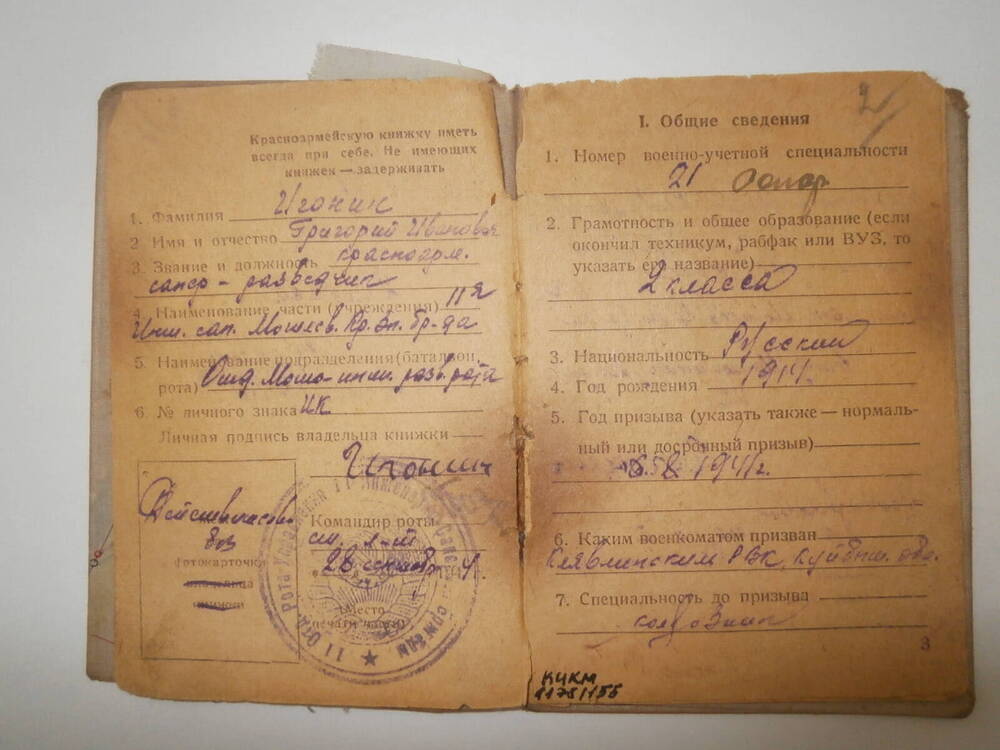 Красноармейскую книжку иметь
всегда при себе. Не имеющих
книжек — задерживать
1. Фамилия Игонин
2 Имя и отчество Григорий Иванович
3. Звание и должность красноарм.
сапер - разведчик
4. Наименование части (учреждения) 11я
Инж. сап. бр-да
5 Наименование подразделения (батальон,
рота) Отд. разв. рота
6. № личного знака ИК
Личная подпись владельца книжки
Игонин
Действительна
без
фотокарточки
владельца
книжки
Командир роты
ст. л-т
28
(Место
печати части)
I. Общие сведения
1. Номер военно-учетной специальности
21 Сапер
2. Грамотность и общее образование (если
окончил техникум, рабфак или ВУЗ, то
указать его название)
2 класса
3. Национальность Русский
4. Год рождения 1914
5. Год призыва (указать также — нормаль-
ный или досрочный призыв)
1941г.
6. Каким военкоматом призван
Клявлинским РВК, Куйбыш. обл.
7. Специальность до призыва
колхозник
3
ККМ
1178/155